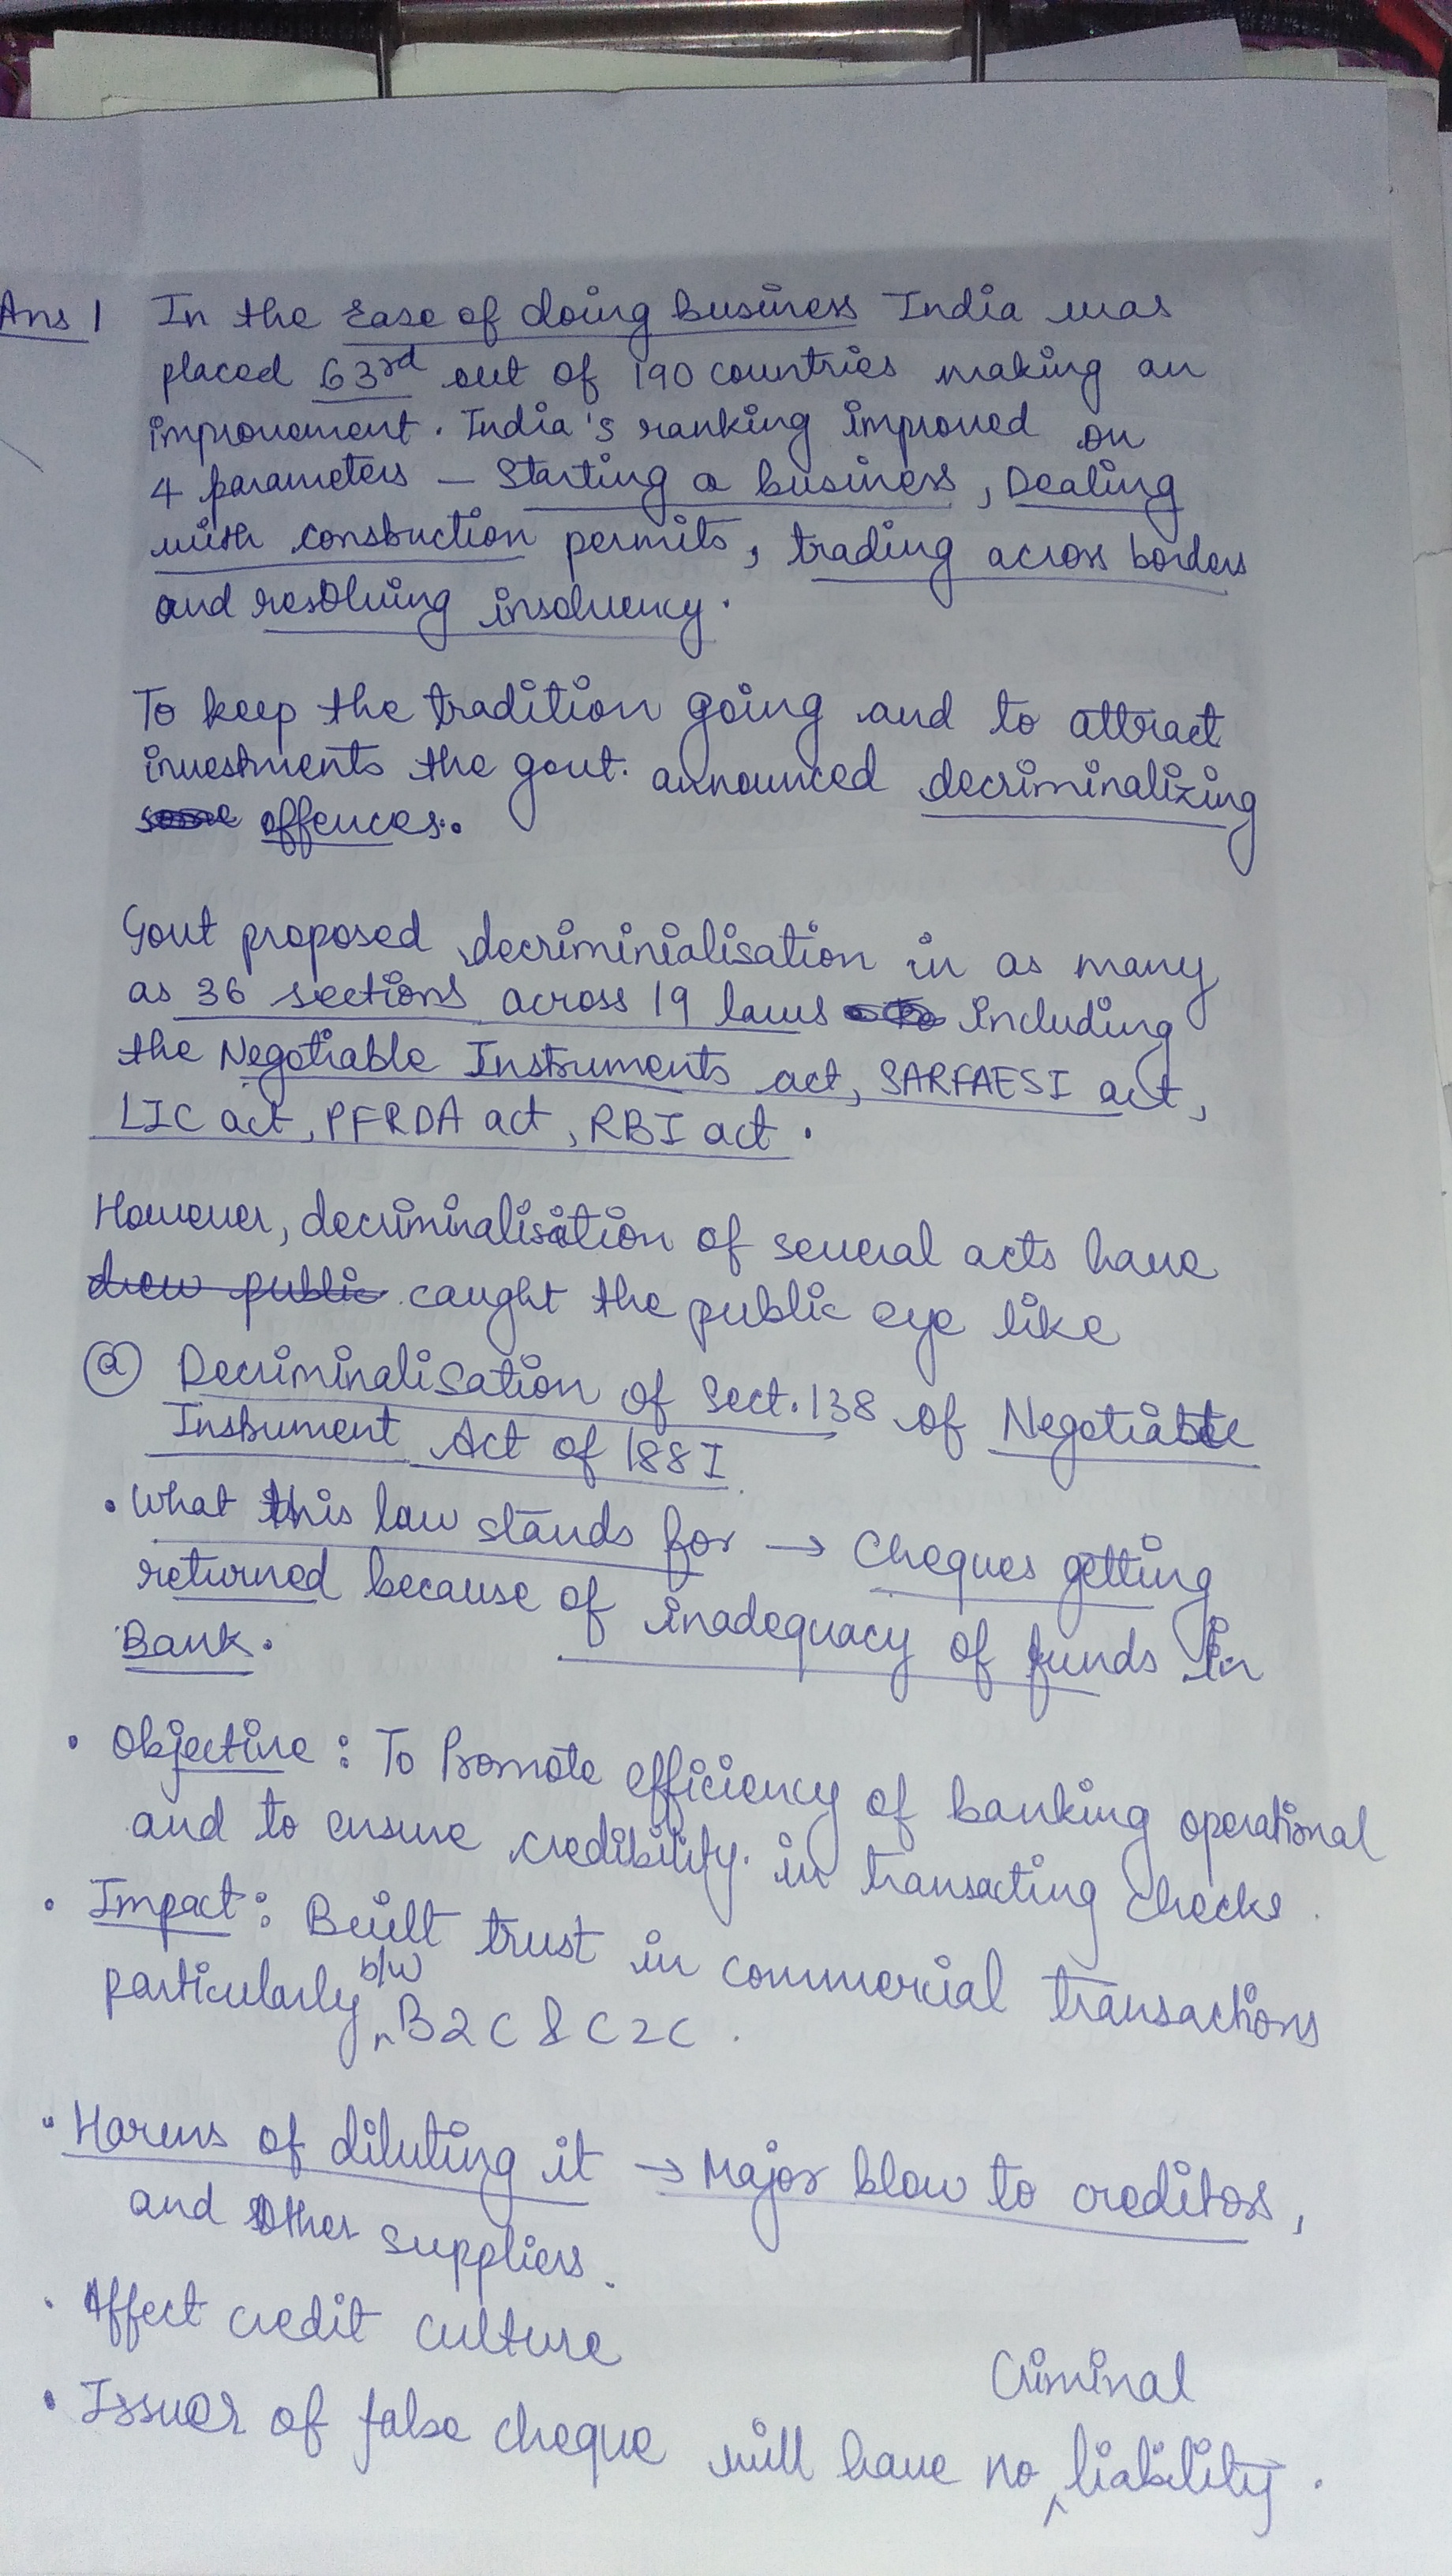 Ans 1 In the Ease of doing business India was
placed 63rd out of 190 countries making an
improvement. India's ranking improved on
4 parameters – Starting a business, Dealing
with construction permits, trading across borders
and resolving insolvency.
To keep the tradition going and to attract
investments the govt. announced decriminalizing
some offences.
Govt proposed decriminialisation in as many
as 36 sections across 19 laws including
the Negotiable Instruments act, SARFAESI act,
LIC act, PFRDA act, RBI act.
However, decriminalisation of several acts have
drew public caught the public eye like
(a) Decriminalisation of Sect. 138 of Negotiable
Instrument Act of 1881
• What this law stands for → Cheques getting
returned because of inadequacy of funds in
Bank.
• Objective : To Promote efficiency of banking operational
and to ensure credibility in transacting checks.
• Impact : Built trust in commercial transactions
particularly b/w B2C & C2C.
• Harms of diluting it → Major blow to creditors,
and other suppliers.
• Affect credit culture
• Issuer of false cheque will have no Criminal liability.